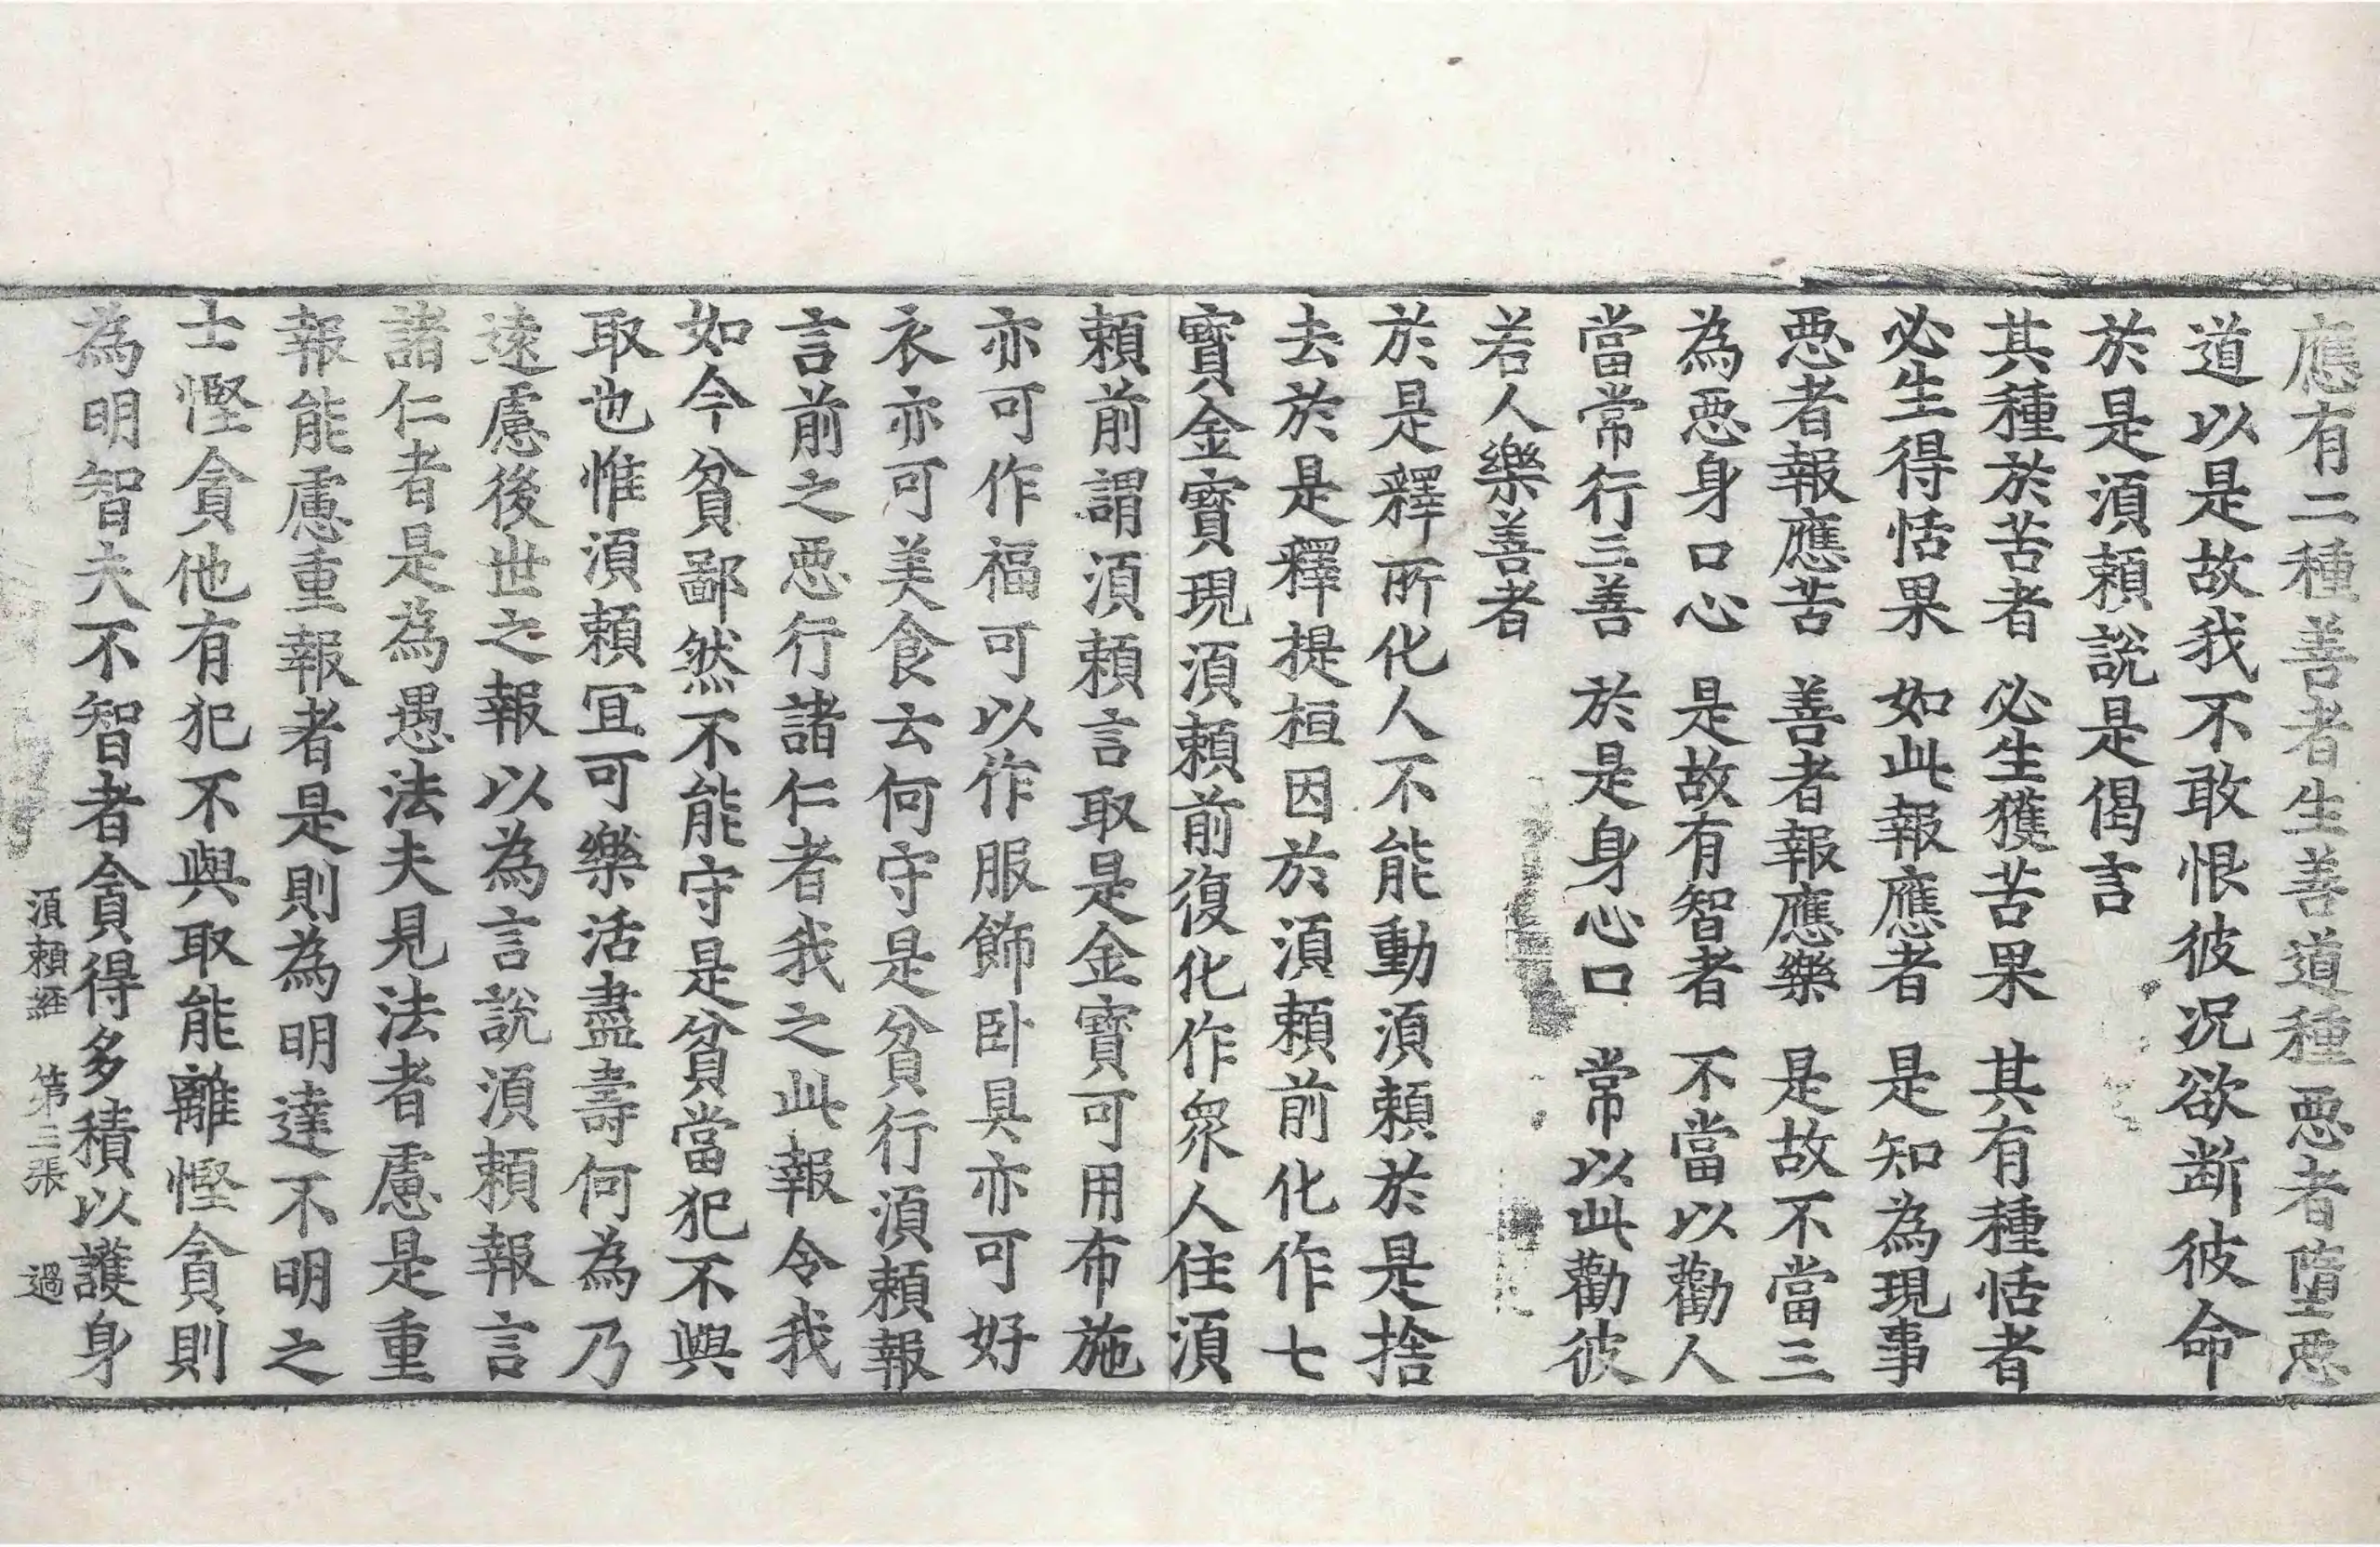 應有二種善者生善道種惡者墮惡
道以是故我不敢恨彼况欲断彼命
於是湏頼說是偈言
其種於苦者 必生獲苦果 其有種恬者
必生得恬果 如此報應者 是知為現事
惡者報應苦 善者報應樂 是故不當三
為惡身口心 是故有智者 不當以勸人
當常行三善 於是身心口 常以此勸彼
若人樂善者
於是釋所化人不能動湏頼於是捨
去於是釋提桓因於湏頼前化作七
寶金寶現湏頼前復化作衆人住湏
頼前謂湏頼言取是金寶可用布施
亦可作福可以作服飾卧具亦可好
衣亦可美食云何守是貧行湏頼報
言前之惡行諸仁者我之此報令我
如今貧鄙然不能守是貧當犯不與
取也惟湏頼冝可樂活盡壽何為乃
遠慮後世之報以為言說湏頼報言
諸仁者是為愚法夫見法者慮是重
報能慮重報者是則為明達不明之
士慳貪他有犯不與取能離慳貪則
為明智夫不智者貪得多積以護身
湏頼経 第三張 過